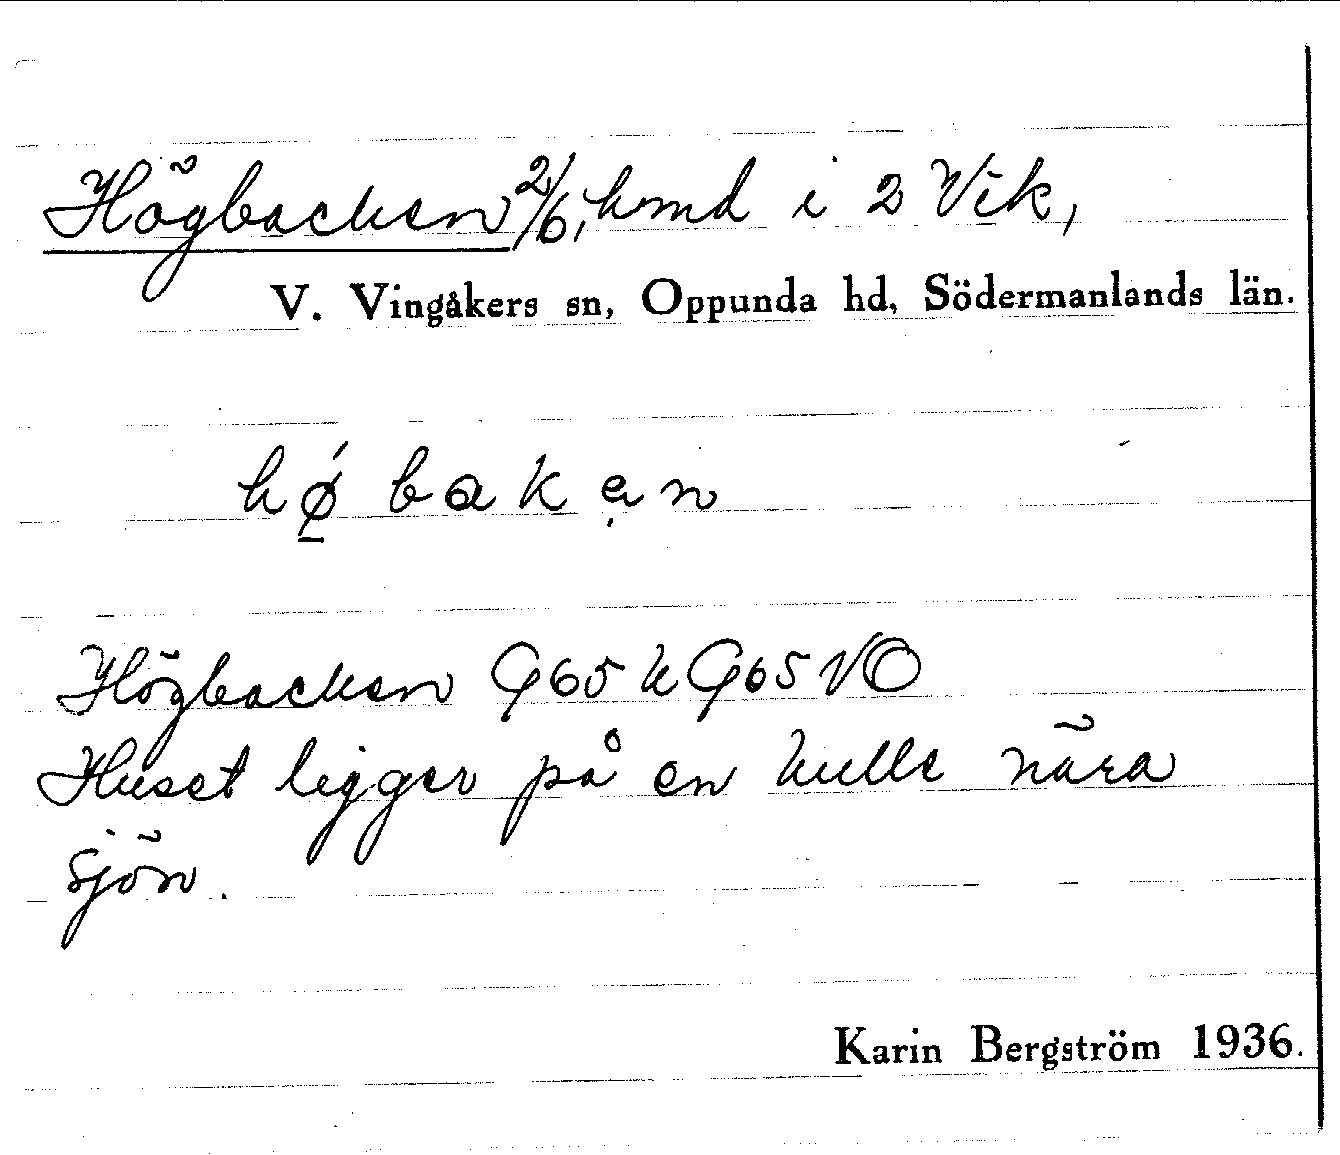 Högbacken 2/6, hmd i 2 Vik,
V. Vingåkers sn, Oppunda hd, Södermanlands län.
hǿ bakạn
Högbacken G65k G65VO
Huset ligger på en kulle nära
sjön.
Karin Bergström 1936.